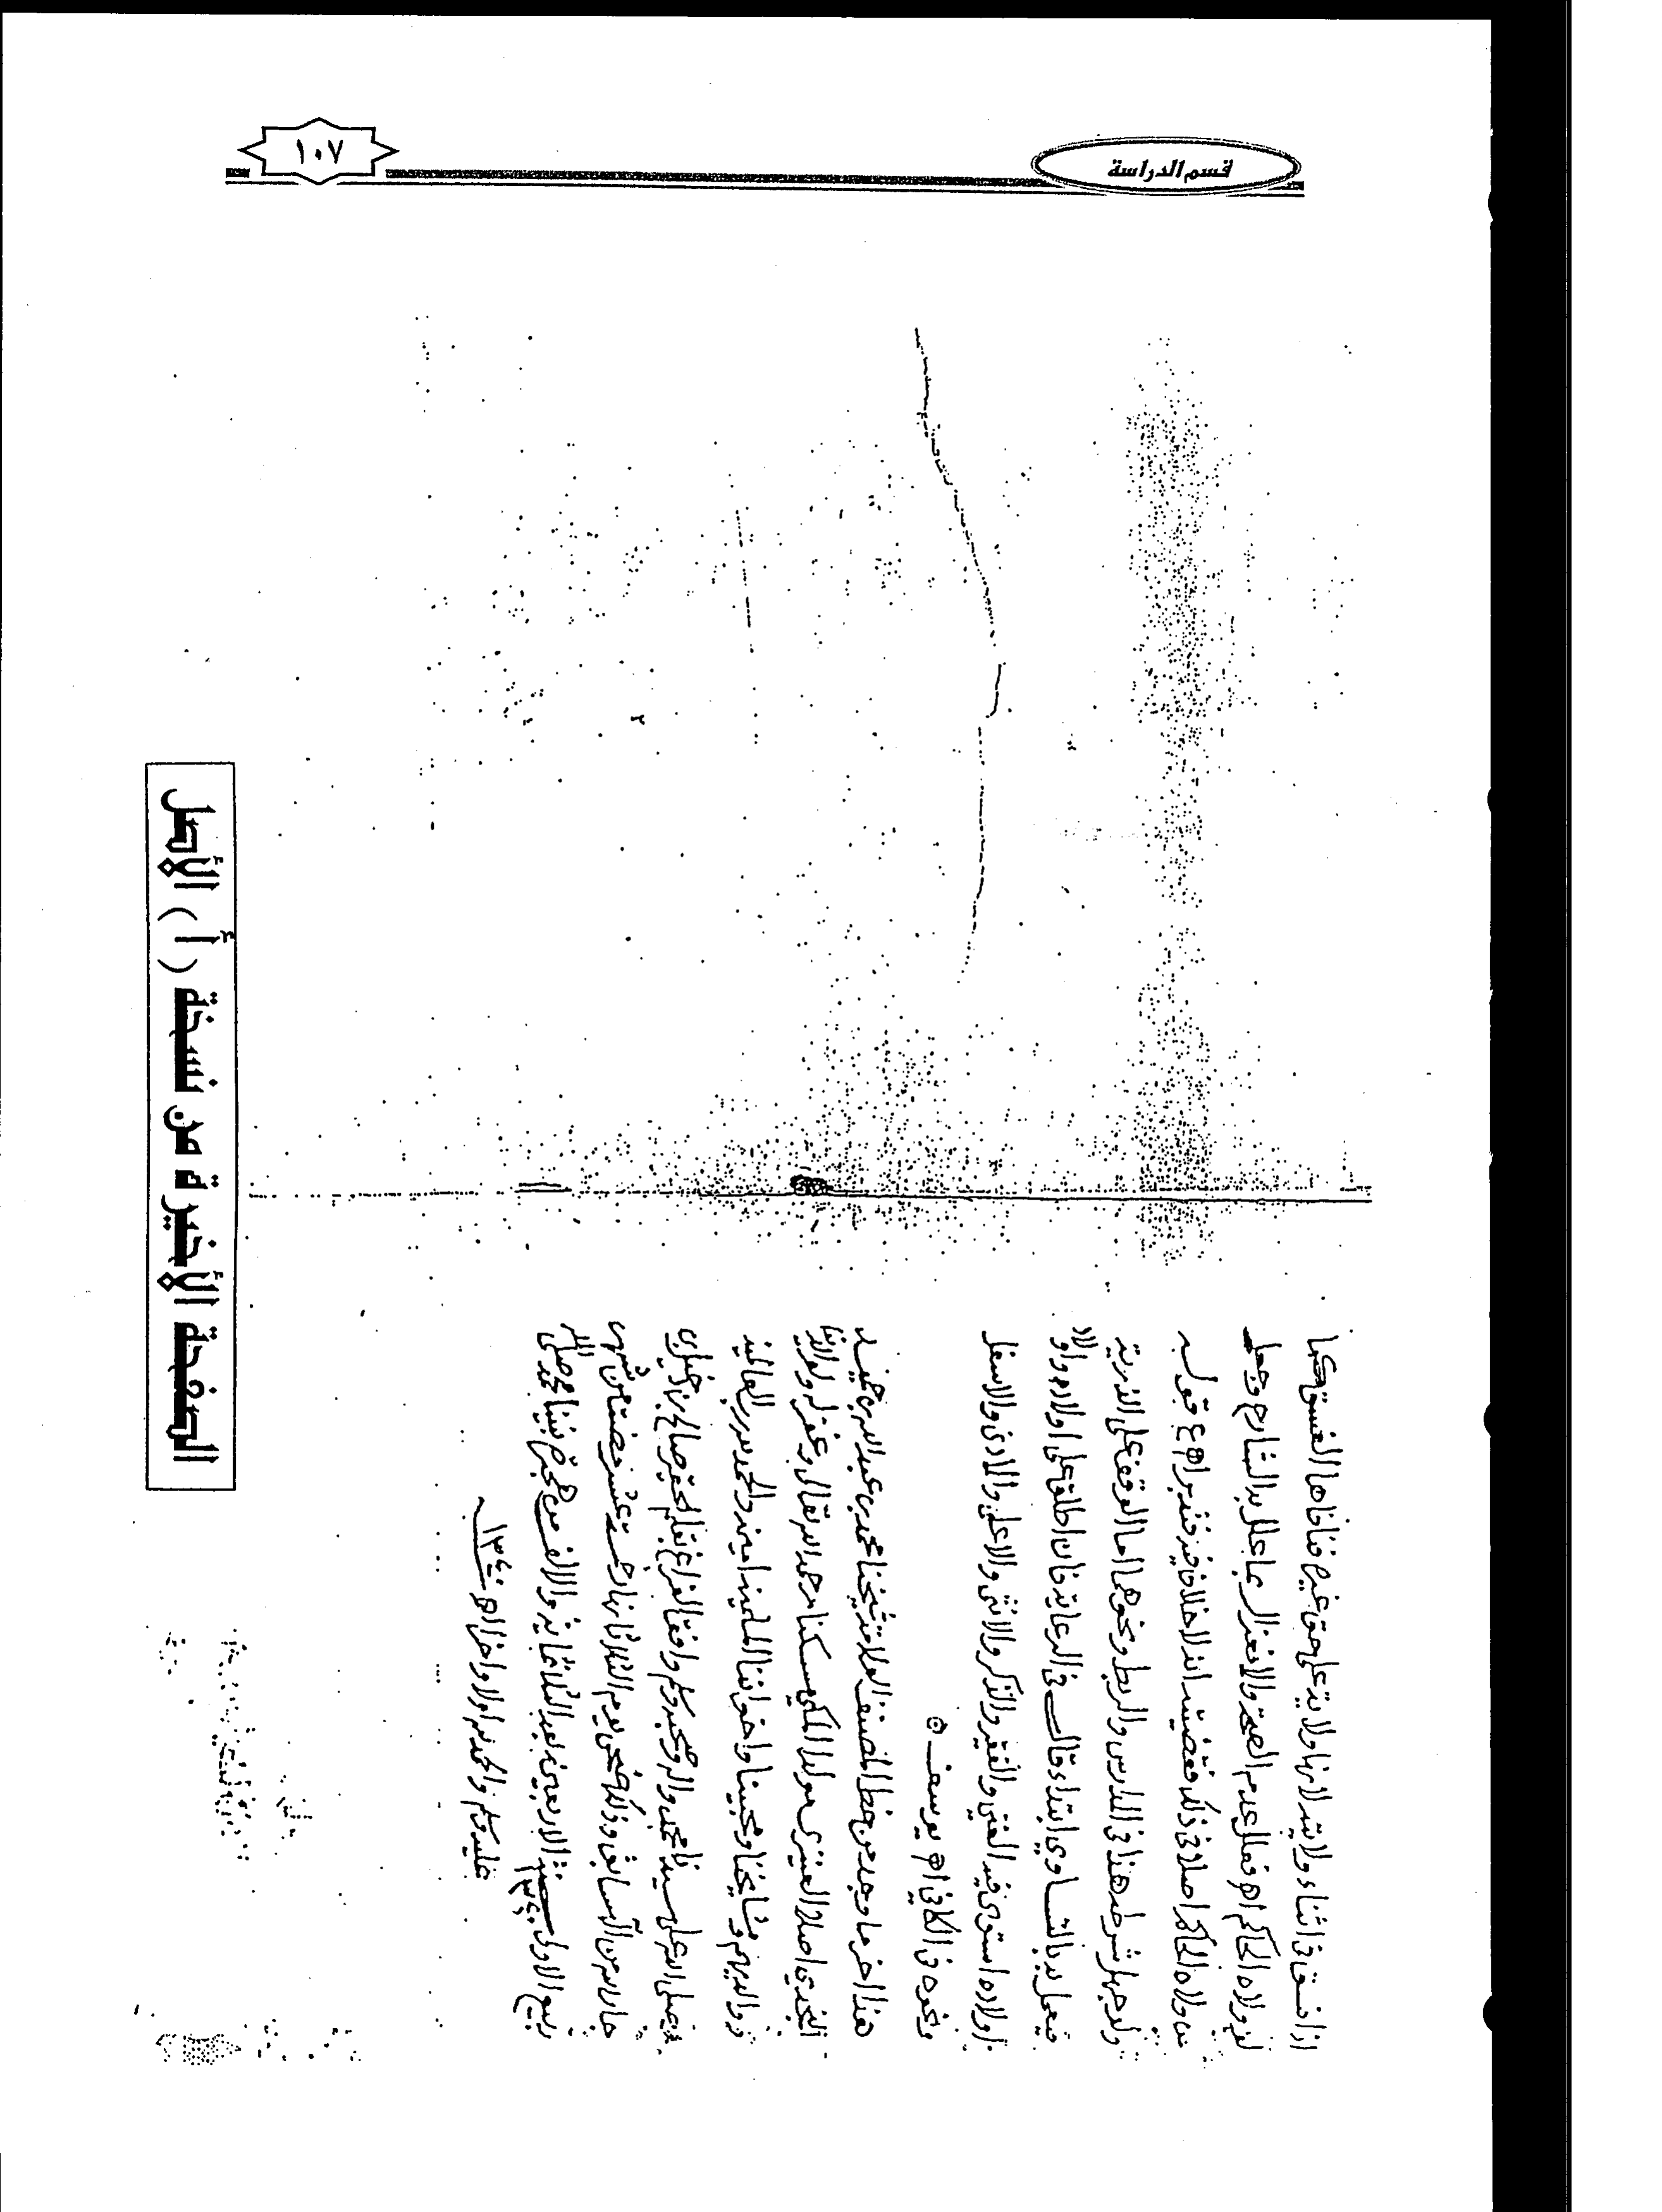 قسم الدراسة
١٠٧
اذا فسق في اثناء ولايته لانها ولاية على حق غيره فنافاها الفسق كما
لو ولاه الحاكم اهـ فعلل عدم الصحة والانعزال بما علل به الشارح وجعل
من ولاه الحاكم اصلا في ذلك فقضيته انه لا خلاف فيه فتدبر اهـ ع قوله
ولو جهل شرطه هذا في المدارس والربط ونحوهما اما الوقف على الذرية
فيعمل به بالتساوي ابتداء قال في الرعاية فان اطلق على اولاده واولاد
اولاده استوى فيه الغني والفقير والذكر والانثى والاعلى والادنى والاسفل
ونحوه في الكافي اهـ يوسف
هذا اخر ما وجد من خط المصنف العلامة شيخنا محمد بن عبد الله بن حميد
النجدي اصلا العنيزي مولدا المكي مسكنا رحمه الله تعالى وغفر له ولوالدينا
ووالديهم ومشايخنا ومحبينا واخواننا المسلمين امين والحمد لله رب العالمين
وصلى الله على سيدنا محمد واله وصحبه وسلم وافق الفراغ بقلم الحقير صالح بن
جار الله من آل سابق وذلك ضحى يوم الثلاثا نهار خمسة عشر مضت من شهر
ربيع الاول سنة الاربعين بعد الثلاثماية والالف من هجرة نبينا محمد صلى الله
١٣٤٠
عليه وسلم والحمد لله اولا واخرا اهـ ١٣٤٠
الصفحة الأخيرة من نسخة ( أ ) الأصل